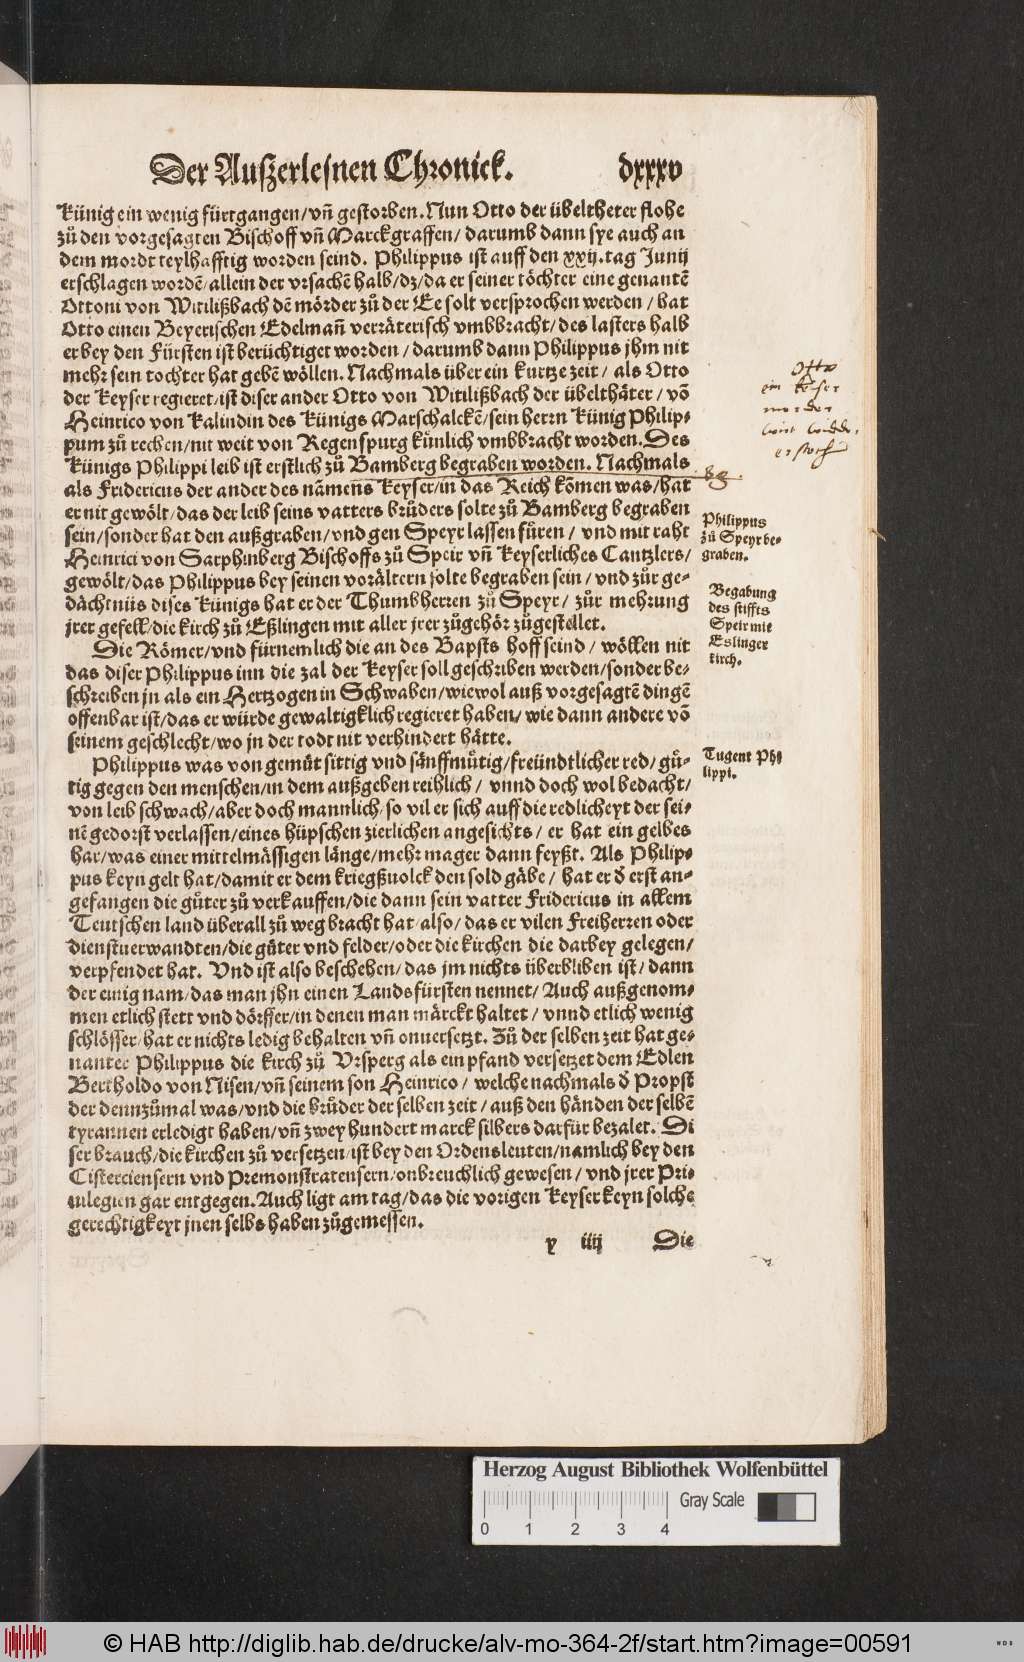 Der Außerlesnen Chronick. dxxxv
Künig ein wenig fürtgangen/vñ gestorben. Nun Otto der übeltheter flohe
zů den vorgesagten Bischoff vñ Marckgraffen/ darumb dann sye auch an
dem mordt teylhafftig worden seind. Philippus ist auff den xxij. tag Junij
erschlagen wordẽ/allein der vrsachẽ halb/dz/da er seiner töchter eine genantẽ
Ottoni von Witilißbach dẽ mörder zů der Ee solt versprochen werden/ hat
Otto einen Beyerischen Edelmañ verräterisch vmbbracht/des lasters halb
er bey den Fürsten ist berüchtiget worden/ darumb dann Philippus jhm nit
mehr sein tochter hat gebẽ wöllen. Nachmals über ein kurtze zeit/ als Otto
der Keyser regieret/ist diser ander Otto von Witilißbach der übelthäter/ võ
Heinrico von Kalindin des Künigs Marschalckẽ/sein herrn Künig Philip⸗
pum zů rechen/nit weit von Regenspurg künlich vmbbracht worden. Des
Künigs Philippi leib ist erstlich zů Bamberg begraben worden. Nachmals
als Fridericus der ander des namens Keyser/in das Reich kõmen was/hat
er nit gewölt/das der leib seins vatters brůders solte zů Bamberg begraben
sein/sonder hat den außgraben/vnd gen Speyr lassen füren/ vnd mit raht
Heinrici von Sarphinberg Bischoffs zů Speir vñ Keyserliches Cantzlers/
gewölt/das Philippus bey seinen vorältern solte begraben sein/ vnd zůr ge⸗
dächtnüs dises Künigs hat er der Thumbherren zů Speyr/ zůr mehrung
jrer gefell/die kirch zů Eßlingen mit aller jrer zůgehör zůgestellet.
Die Römer/vnd fürnemlich die an des Bapsts hoff seind/ wöllen nit
das diser Philippus inn die zal der Keyser soll geschriben werden/sonder be⸗
schreiben jn als ein Hertzogen in Schwaben/wiewol auß vorgesagtẽ dingẽ
offenbar ist/das er würde gewaltigklich regieret haben/ wie dann andere võ
seinem geschlecht/wo jn der todt nit verhindert hätte.
Philippus was von gemůt sittig vnd sänffmůtig/freündtlicher red/ gů⸗
tig gegen den menschen/in dem außgeben reihlich/ vnnd doch wol bedacht/
von leib schwach/aber doch mannlich/so vil er sich auff die redlicheyt der sei⸗
nẽ gedorst verlassen/eines hüpschen zierlichen angesichts/ er hat ein gelbes
har/was einer mittelmässigen länge/mehr mager dann feyßt. Als Philip⸗
pus keyn gelt hat/damit er dem kriegßuolck den sold gäbe/ hat er d̓ erst an⸗
gefangen die gůter zů verkauffen/die dann sein vatter Fridericus in allem
Teutschen land überall zů weg bracht hat/also/das er vilen Freiherren oder
dienstuerwandten/die gůter vnd felder/oder die kirchen die darbey gelegen/
verpfendet hat. Vnd ist also beschehen/das jm nichts überbliben ist/dann
der einig nam/das man jhn einen Landsfürsten nennet/ Auch außgenom⸗
men etlich stett vnd dörffer/in denen man märckt haltet/ vnnd etlich wenig
schlösser/hat er nichts ledig behalten vñ onuersetzt. Zů der selben zeit hat ge⸗
nanter Philippus die kirch zů Vrsperg als ein pfand versetzet dem Edlen
Bertholdo von Nisen/vñ seinem son Heinrico/ welche nachmals d̓ Propst
der dennzůmal was/vnd die brůder der selben zeit/ auß den händen der selbẽ
tyrannen erledigt haben/vñ zwey hundert marck silbers darfür bezalet. Di
ser brauch/die kirchen zů versetzen/ist bey den Ordensleuten/namlich bey den
Cisterciensern vnd Premonstratensern/onbreuchlich gewesen/ vnd jrer Pri⸗
uilegien gar entgegen. Auch ligt am tag/das die vorigen Keyser keyn solche
gerechtigkeyt jnen selbs haben zůgemessen.
y iiij Die
Otto
ein Keiser
morder
wirt
erstoch
Philippus
zů Speyr be⸗
graben.
Begabung
des stiffts
Speir mit
Eslinger
kirch.
Tugent Phi
lippi.
Herzog August Bibliothek Wolfenbüttel
Gray Scale
0 1 2 3 4
© HAB http://diglib.hab.de/drucke/alv-mo-364-2f/start.htm?image=00591